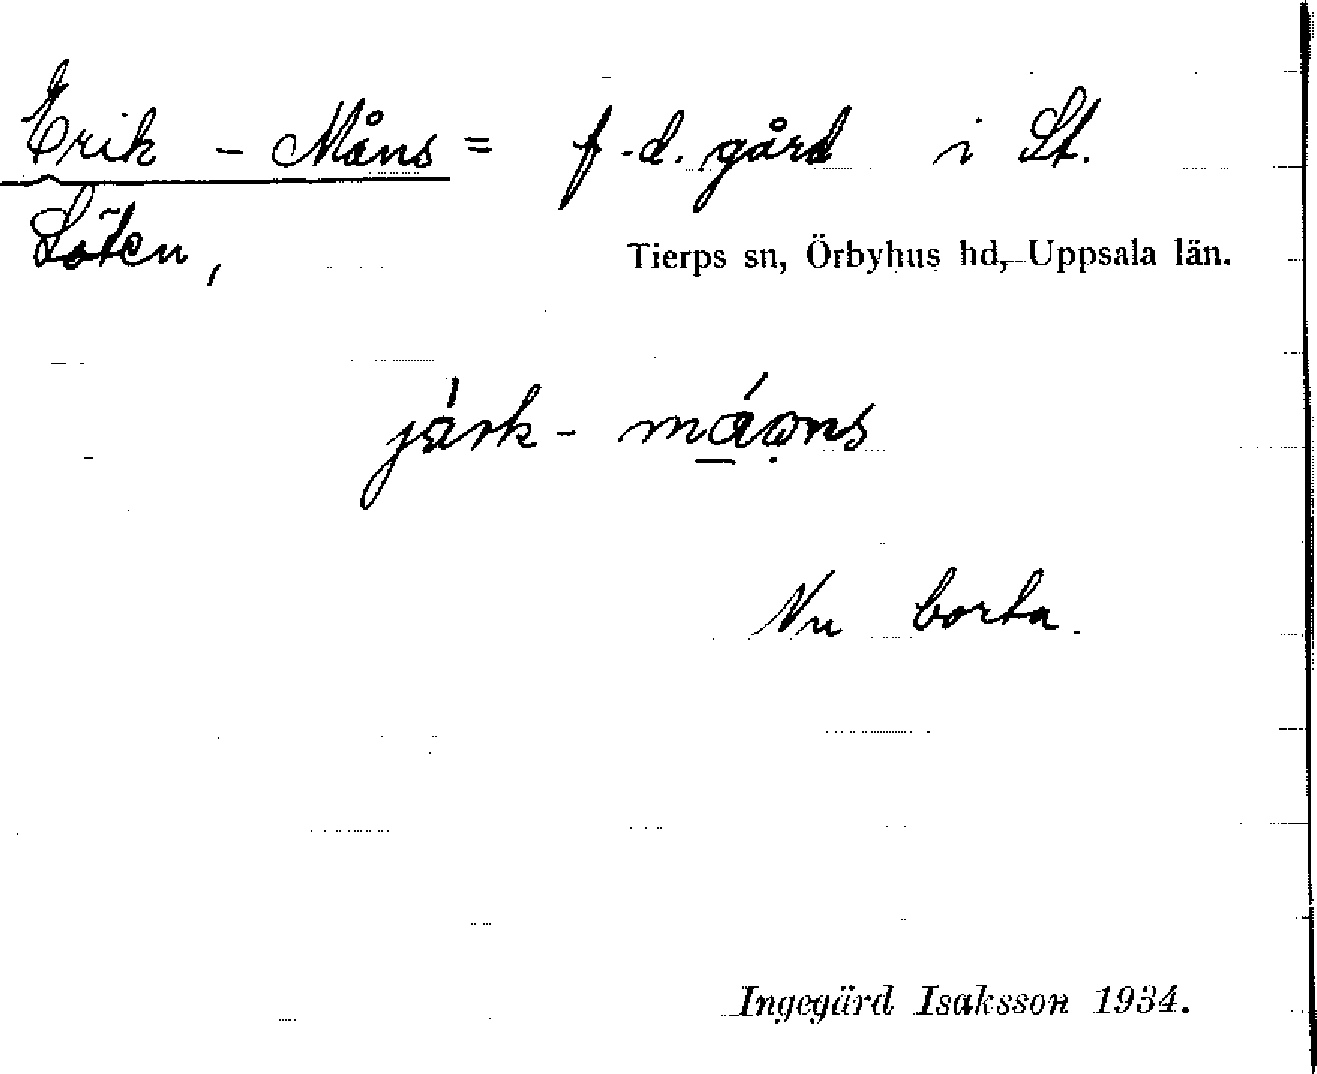 Erik - Måns = f.d. gård i St.
Löten,
Tierps sn, Örbyhus hd, Uppsala län.
järk- máǫns
Nu borta.
Ingegärd Isaksson 1934.